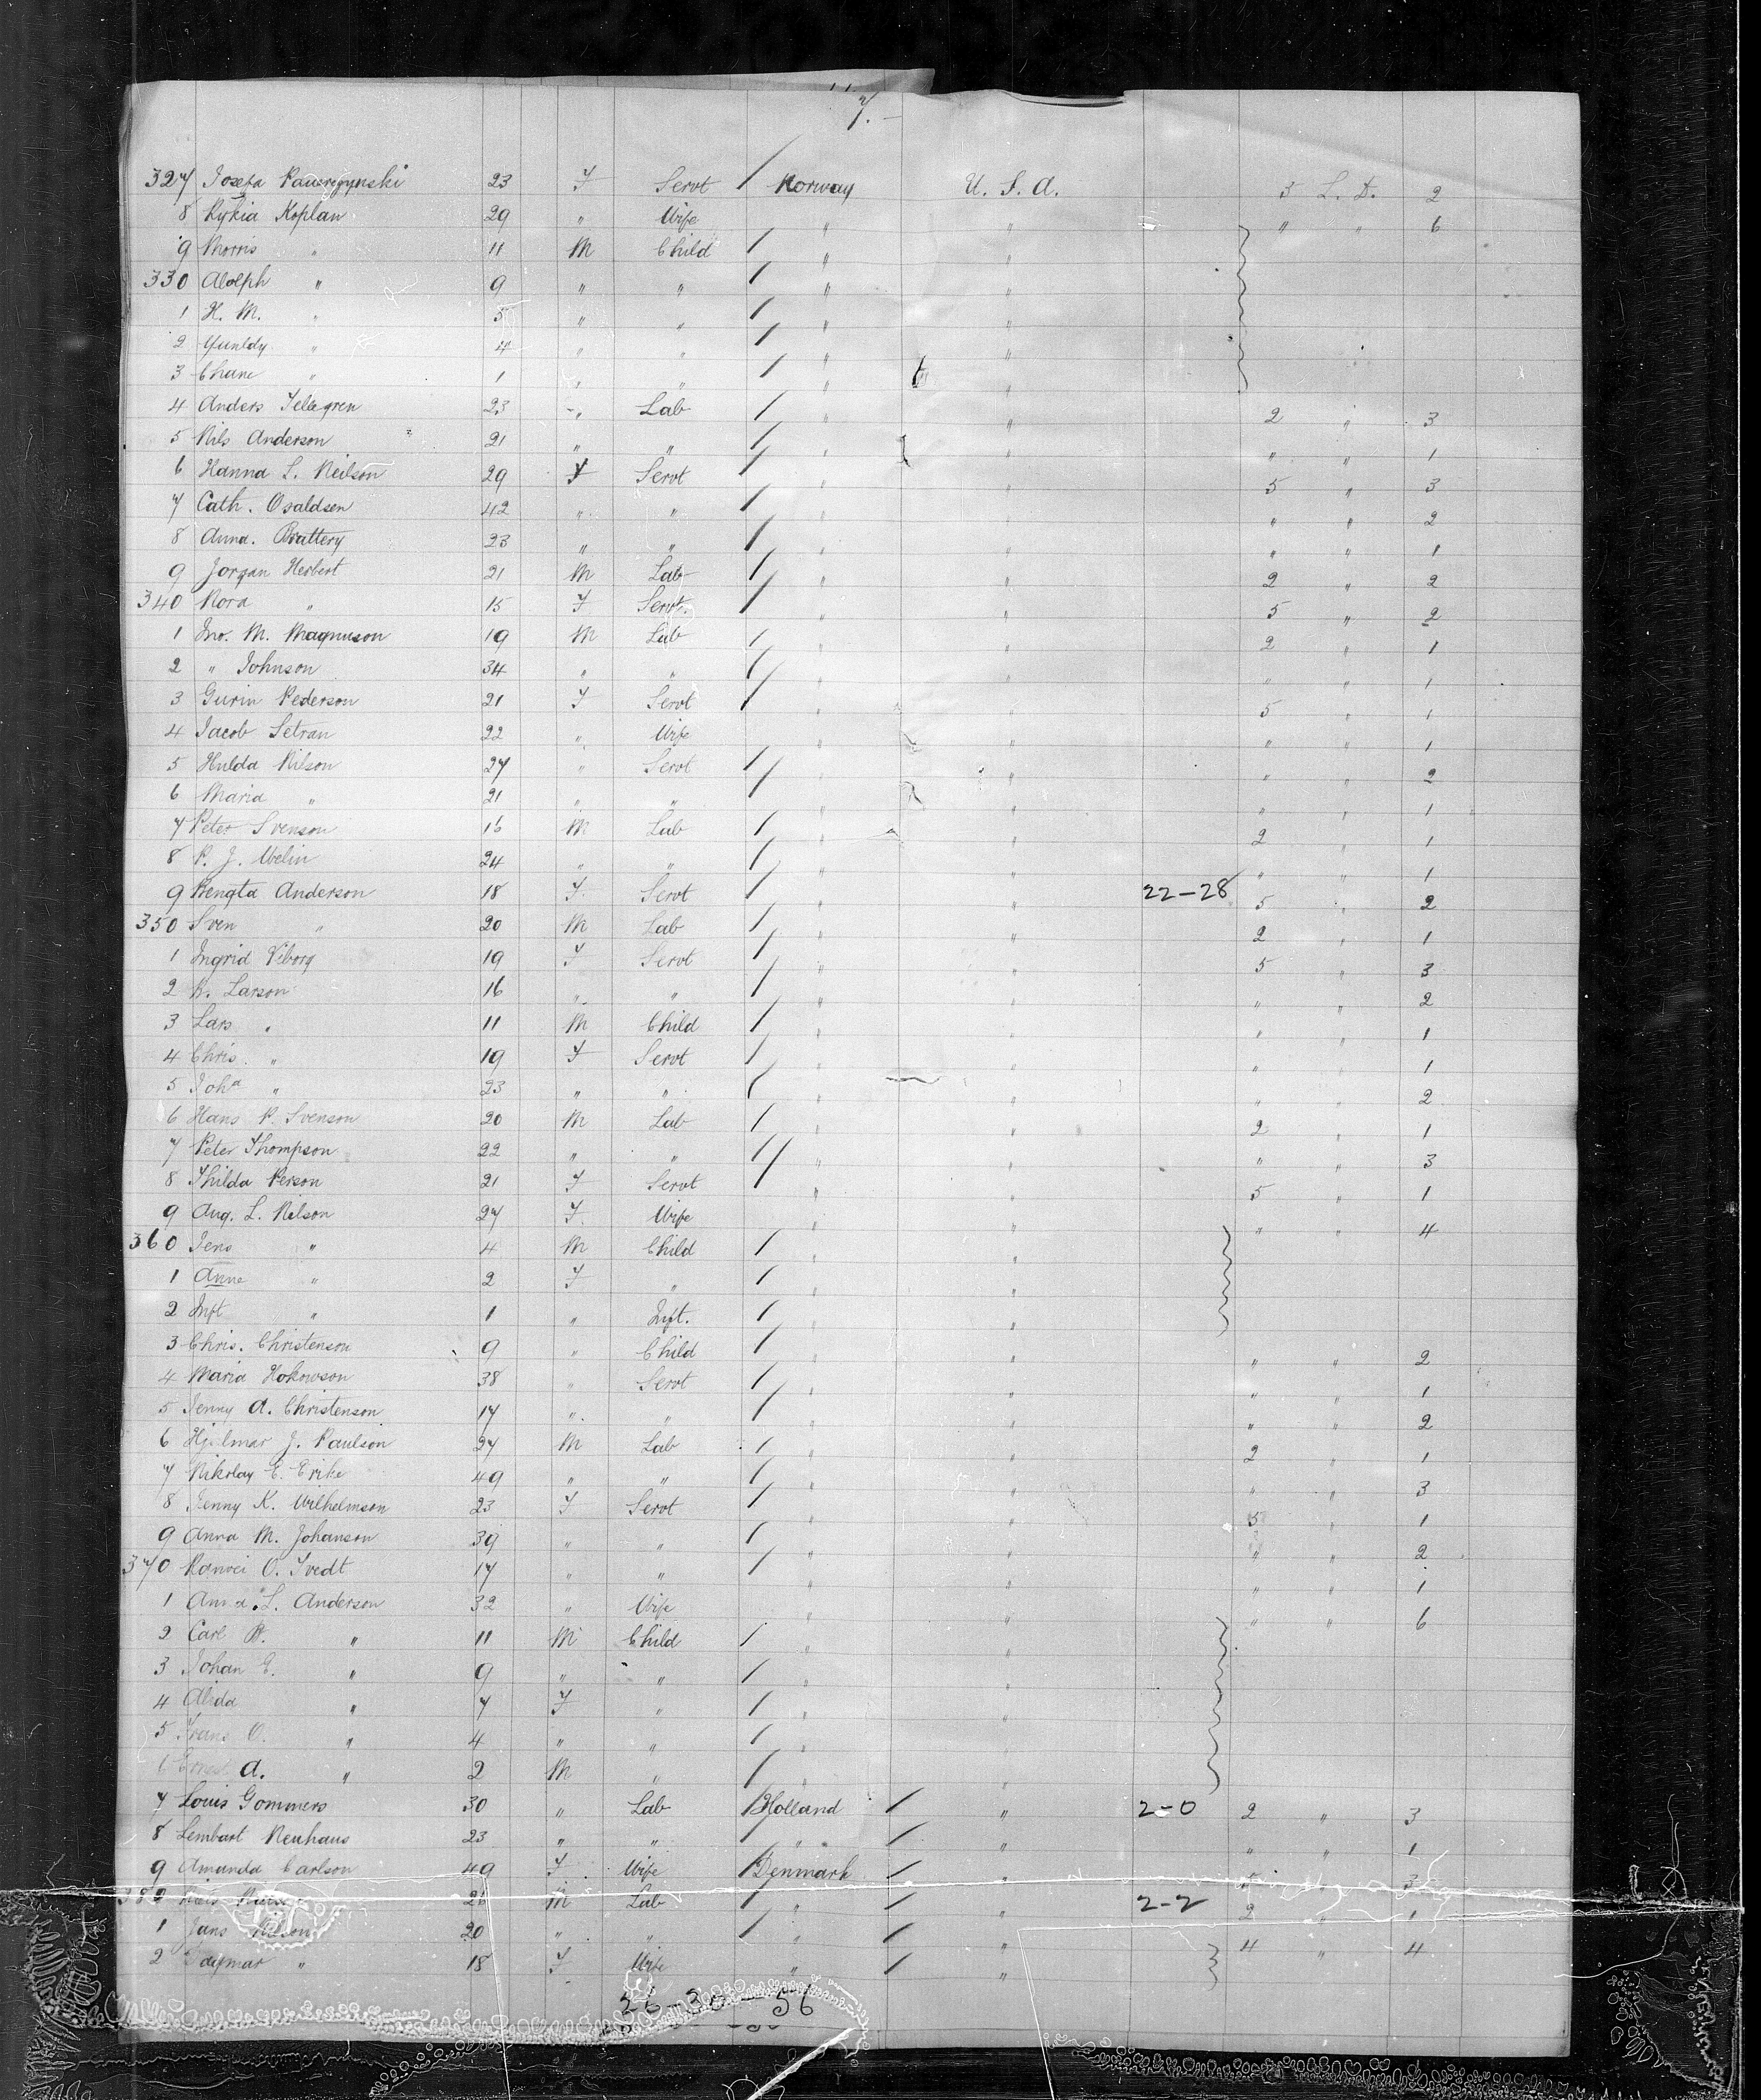 7.
327 Josefa 23 F Servt Norway U. S. A. 3 L. D. 2
8 Rykia Koplan 29 " Wife " " " " 6
9 Morris " 11 M Child " "
330 Adolph " 9 " " " "
1 H. M. " 5 " " " "
2 " 4 " " " "
3 Chane " 1 " " " "
4 Anders 23 " Lab " " 2 " 3
5 Nils Anderson 21 " " " " " " 1
6 Hanna S. Neilson 29 F Servt " " 5 " 3
7 Cath. Osaldsen 42 " " " " " " 2
8 Anna. Brattery 23 " " " " " " 1
9 Jorgan Herbert 21 M Lab " " 2 " 2
340 Nora " 15 F Servt. " " 5 " 2
1 Jno. M. Magnuson 19 M Lab " " 2 " 1
2 " Johnson 34 " " " " " " 1
3 Gurin Pederson 21 F Servt " " 5 " 1
4 Jacob Setran 22 " Wife " " " " 1
5 Hulda Nilson 27 " Servt " " " " 2
6 Maria " 21 " " " " " " 1
7 Peter Svenson 16 M Lab " " 2 " 1
8 P. J. 24 " " " " " " 1
9 Bengta Anderson 18 F Servt " " 22-28 5 " 2
350 Sven " 20 M Lab " " 2 " 1
1 Ingrid Viborg 19 F Servt " " 5 " 3
2 K. Larson 16 " " " " " " 2
3 Lars " 11 M Child " " " " 1
4 Chris. " 19 F Servt " " " " 1
5 Joha " 23 " " " " " " 2
6 Hans P. Svenson 20 M Lab " " 2 " 1
7 Peter Thompson 22 " " " " " " 3
8 Thilda Person 21 F Servt " " 5 " 1
9 Aug. L. Nilson 27 F. Wife " " " " 4
360 Jens " 4 M Child " "
1 Anne " 2 F " " "
2 Inft " 1 " Inft. " "
3 Chris. Christenson 9 " Child " " " " 2
4 Maria Hokowson 38 " Servt " " " " 1
5 Jenny A. Christenson 17 " " " " " " 2
6 Hjelmar J. Paulson 24 M Lab " " 2 " 1
7 Nikolay E. Erike 49 " " " " " " 3
8 Jenny K. Wilhelmson 23 F Servt " " 5 " 1
9 Anna M. Johanson 39 " " " " " " 2
370 O. Tvedt 17 " " " " " " 1
1 Anna L. Anderson 32 " Wife " " " " 6
2 Carl " 11 M Child " "
3 Johan E. " 9 " " " "
4 Alida " 7 F " " "
5 Frans O. " 4 " " " "
6 A. " 2 M " " "
7 Louis Gommers 30 " Lab Holland " 2-0 2 " 3
8 Lembart Neuhaus 23 " " " " " " 1
9 Amanda Carlson 49 F Wife Denmark " 5 " 3
380 26 M Lab " " 2-2 2 " 1
1 Jans Nilson 20 " " " " 4 " 4
2 Dagmar " 18 F Wife " "
26-30-56